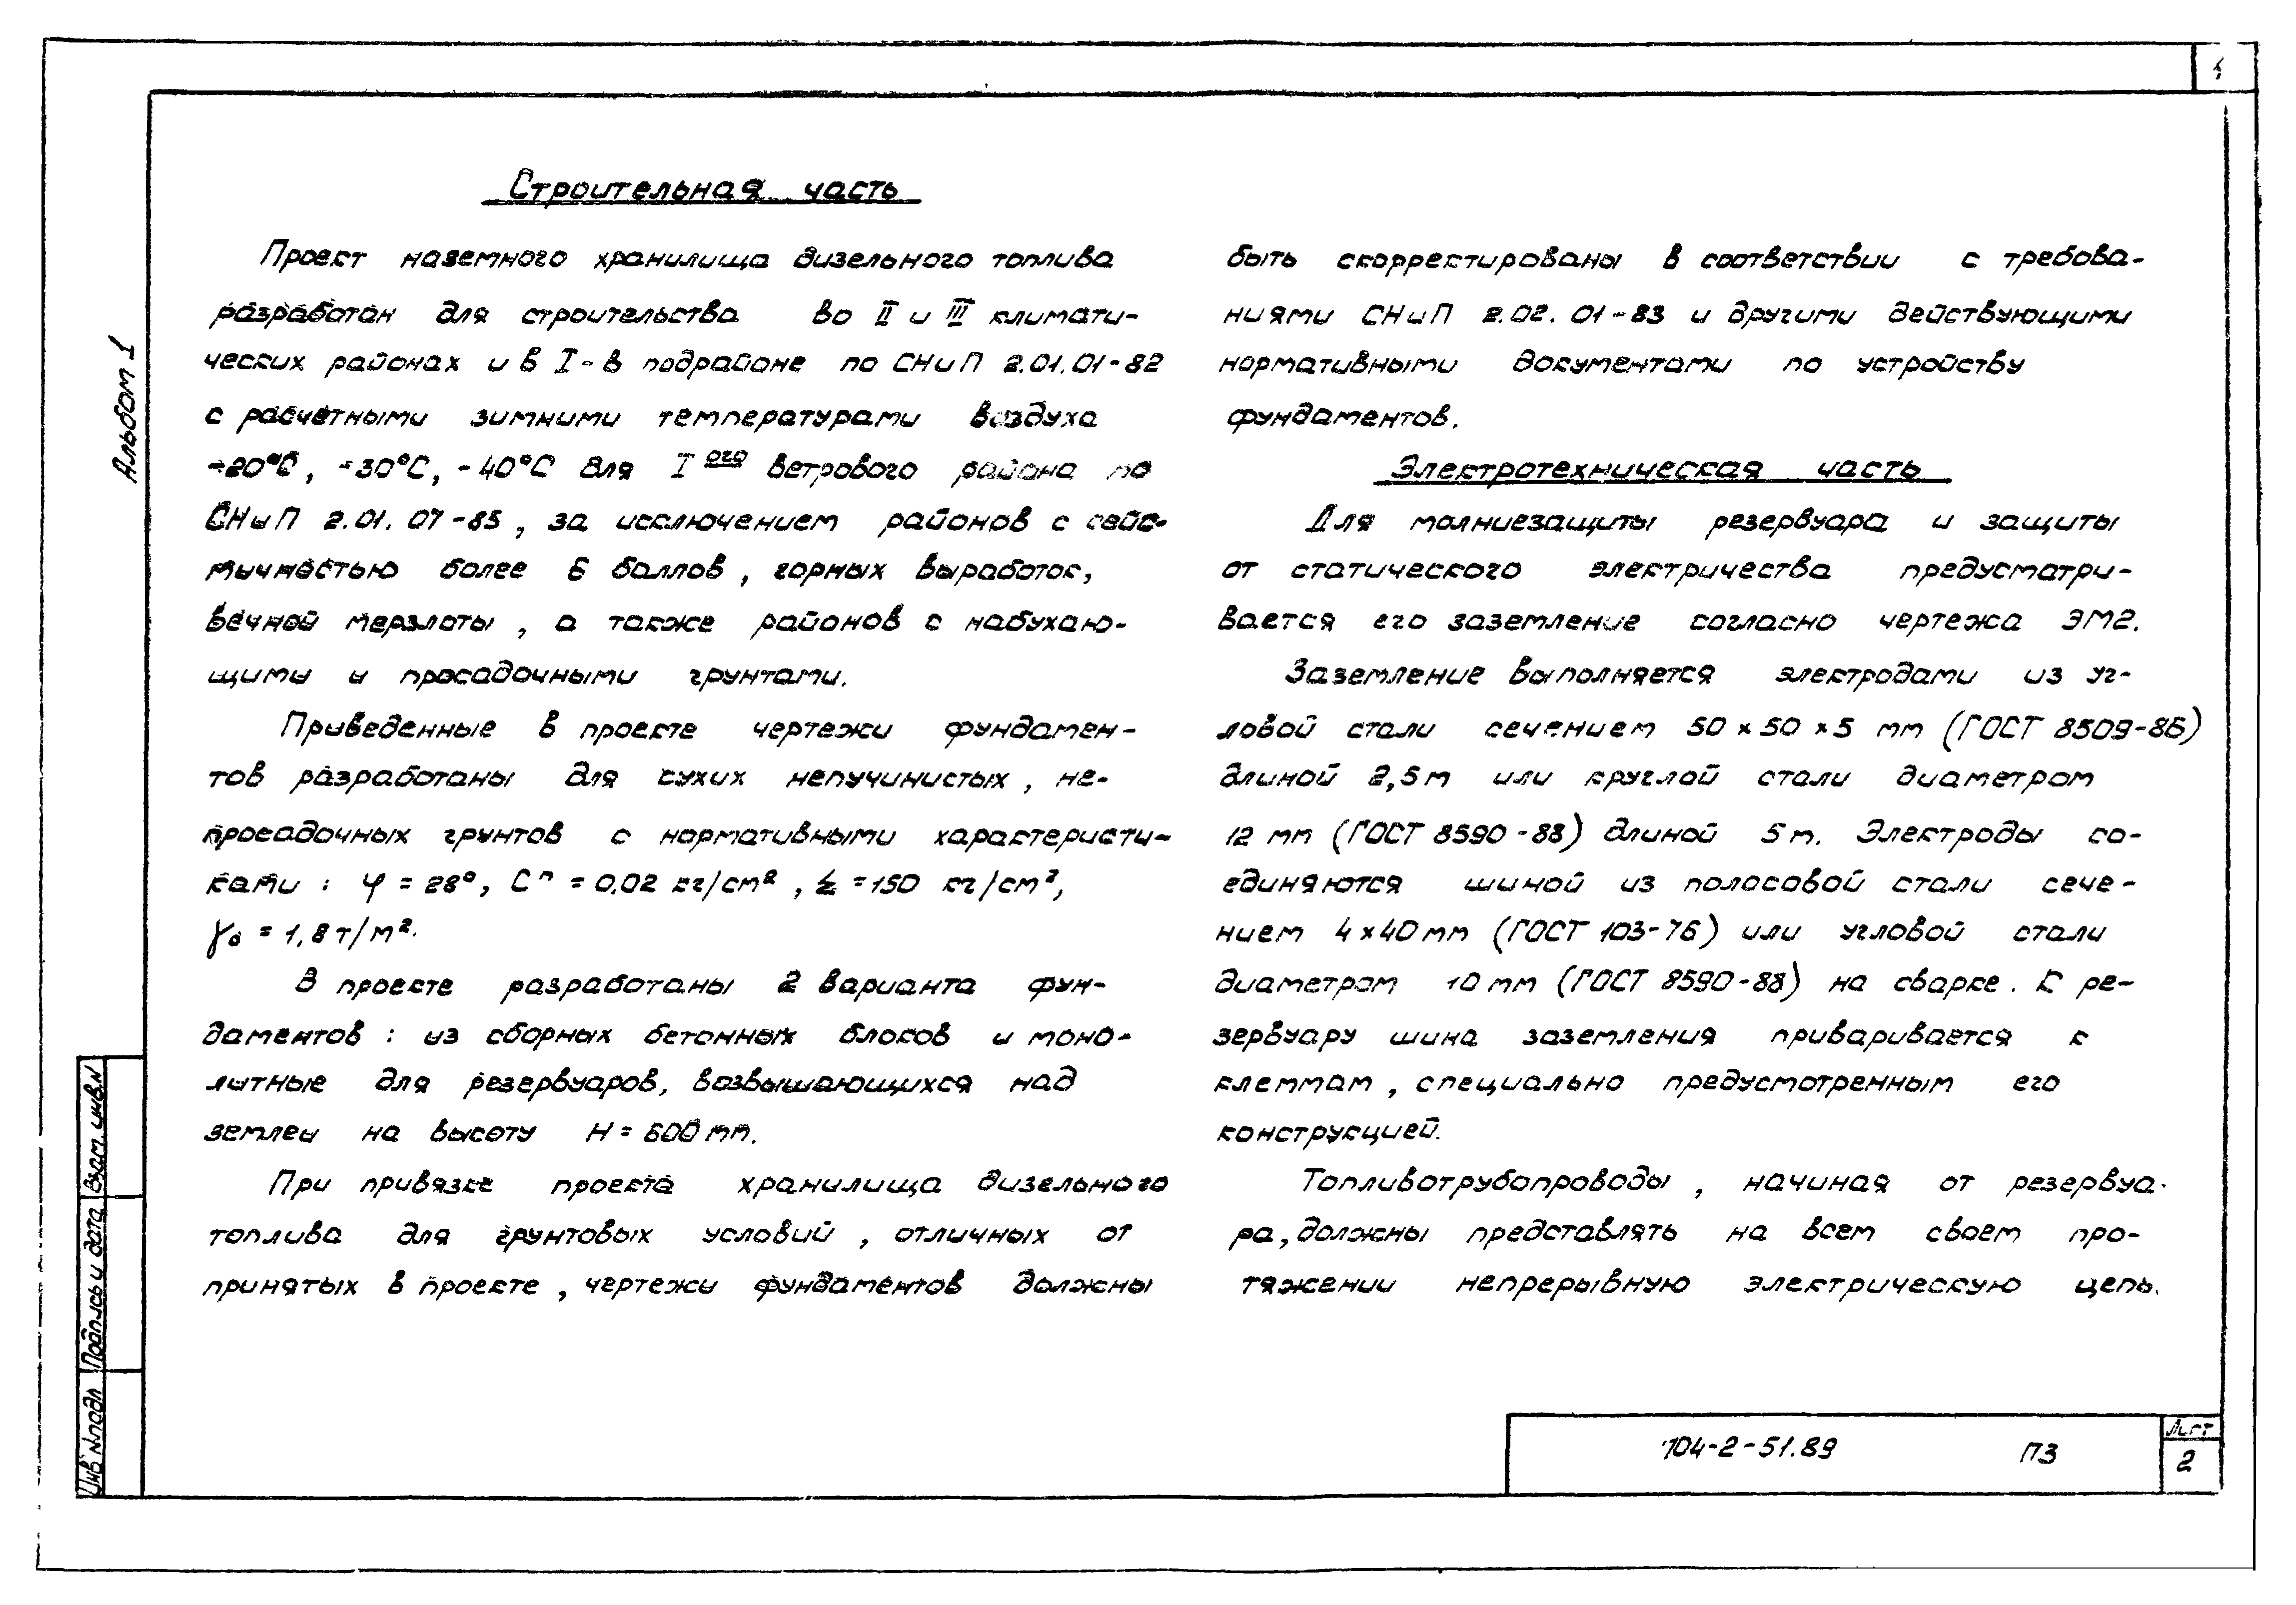 Альбом 1
Строительная часть
Проект наземного хранилища дизельного топлива
разработан для строительства во II и III климати-
ческих районах и в I-в подрайоне по СНиП 2.01.01-82
с расчётными зимними температурами воздуха
-20°С, -30°С, -40°С для I ого ветрового района по
СНиП 2.01.07-85, за исключением районов с сейс-
мичностью более 6 баллов, горных выработок,
вечной мерзлоты, а также районов с набухаю-
щими и просадочными грунтами.
Приведенные в проекте чертежи фундамен-
тов разработаны для сухих непучинистых, не-
просадочных грунтов с нормативными характеристи-
ками: φ = 28°, Cⁿ = 0,02 кг/см², = 150 кг/см²,
γo = 1,8 т/м².
В проекте разработаны 2 варианта фун-
даментов: из сборных бетонных блоков и моно-
литные для резервуаров, возвышающихся над
землей на высоту H = 600 мм.
При привязке проекта хранилища дизельного
топлива для грунтовых условий, отличных от
принятых в проекте, чертежи фундаментов должны
быть скорректированы в соответствии с требова-
ниями СНиП 2.02.01-83 и другими действующими
нормативными документами по устройству
фундаментов.
Электротехническая часть
Для молниезащиты резервуара и защиты
от статического электричества предусматри-
вается его заземление согласно чертежа ЭМ2.
Заземление выполняется электродами из уг-
ловой стали сечением 50 x 50 x 5 мм (ГОСТ 8509-86)
длиной 2,5 м или круглой стали диаметром
12 мм (ГОСТ 8590-88) длиной 5 м. Электроды со-
единяются шиной из полосовой стали сече-
нием 4 x 40 мм (ГОСТ 103-76) или угловой стали
диаметром 10 мм (ГОСТ 8590-88) на сварке. К ре-
зервуару шина заземления приваривается к
клеммам, специально предусмотренным его
конструкцией.
Топливотрубопроводы, начиная от резервуа-
ра, должны представлять на всем своем про-
тяжении непрерывную электрическую цепь.
Взам. инв. N
Подпись и дата
Инв N подл
704-2-51.89 ПЗ
Лист
2